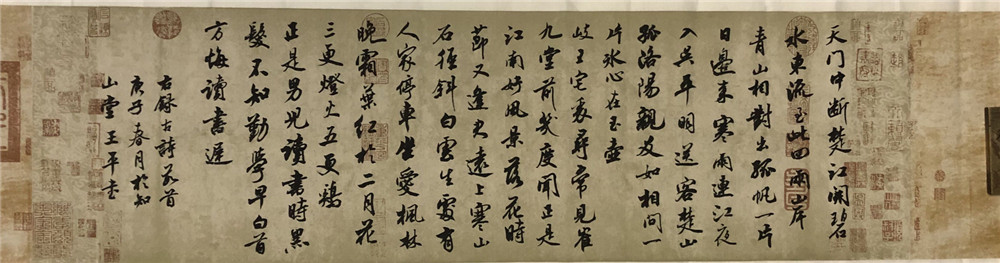 天门中断楚江开碧
水东流至此回两山岸
青山相对出孤帆一片
日边来寒雨连江夜
入吴平明送客楚山
孤洛阳亲友如相问一
片冰心在玉壶
岐王宅里寻常见崔
九堂前几度闻正是
江南好风景落花时
节又逢君远上寒山
石径斜白云生处有
人家停车坐爱枫林
晚霜叶红于二月花
三更灯火五更鸡
正是男儿读书时黑
发不知勤学早白首
方悔读书迟
右录古诗五首
庚子春月于知
山堂王平书